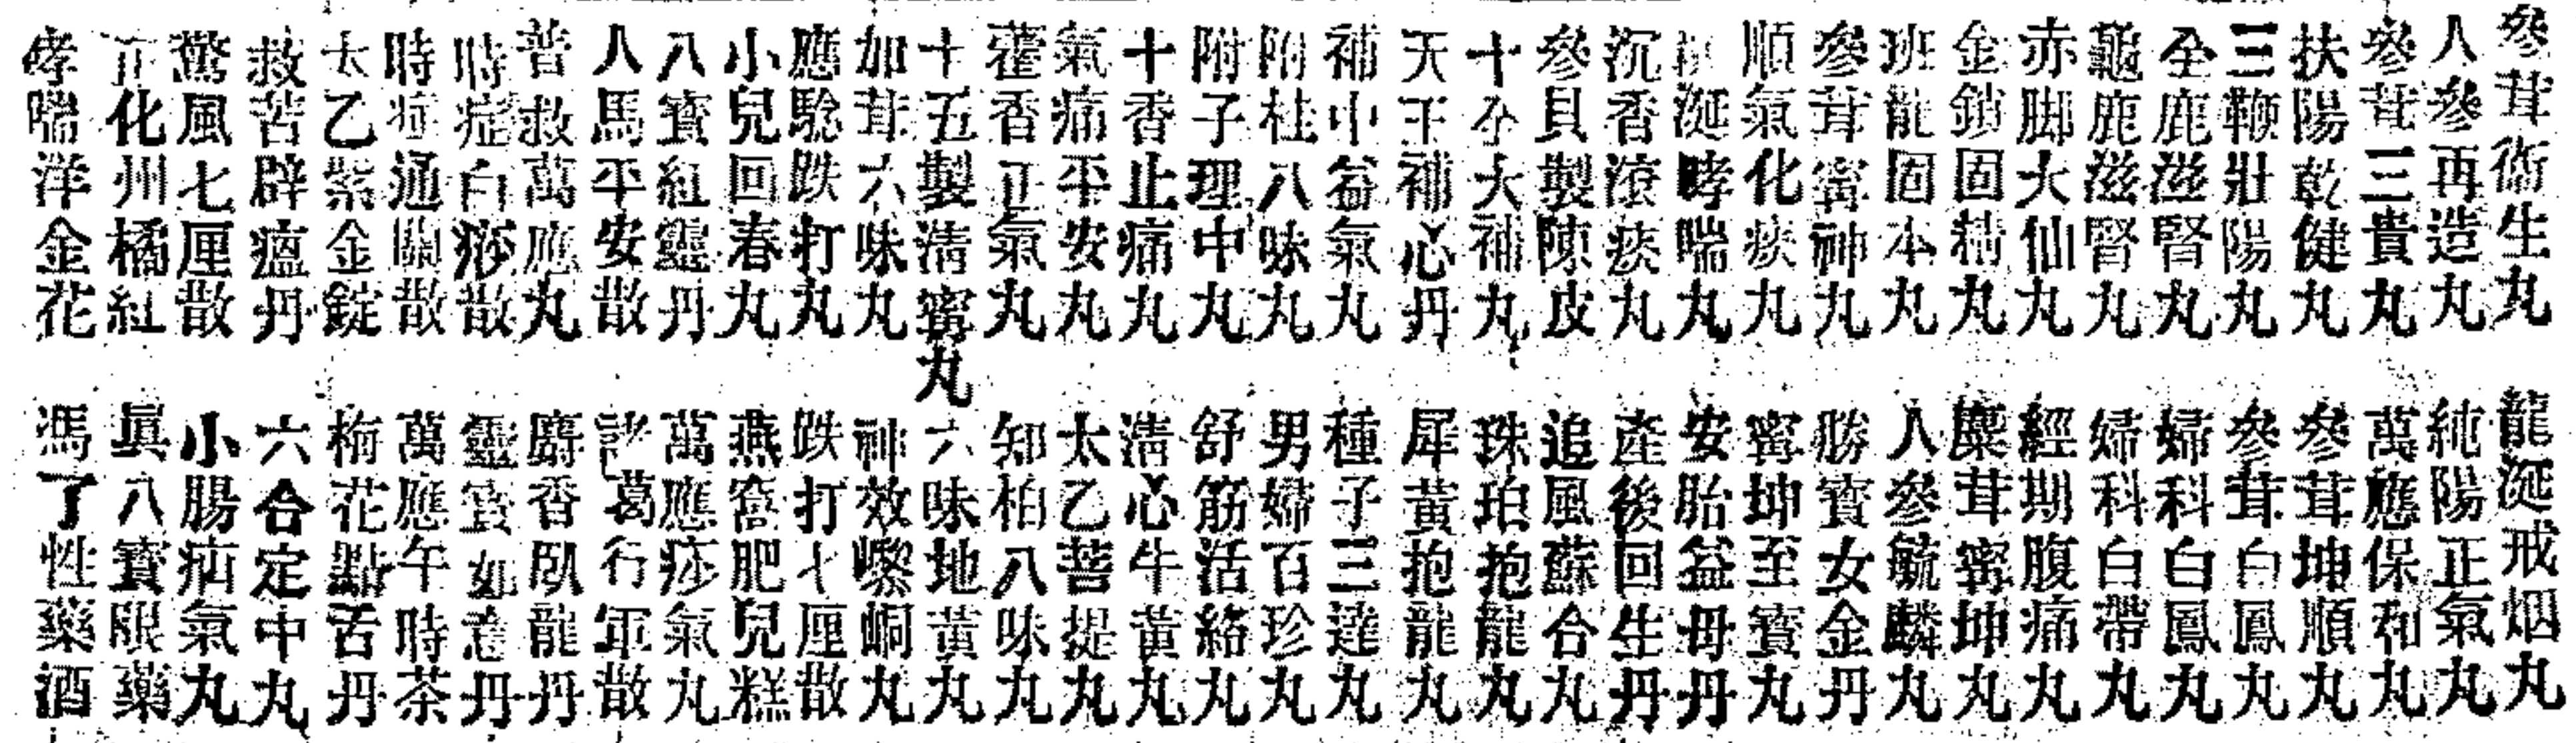 參茸衞生丸
人參再造丸
參茸三貴丸
扶陽乾健丸
三鞭壯陽丸
全鹿滋腎丸
龜鹿滋腎丸
赤脚大仙丸
金鎖固精丸
班龍固本丸
參茸寗神丸
順氣化痰丸
涎哮喘丸
沉香滚痰丸
參貝製陳皮
十全大補丸
天王補心丹
補中益氣丸
附桂八味丸
附子理中丸
十香止痛丸
氣痛平安丸
藿香正氣丸
十五製淸寗丸
加茸六味丸
應驗跌打丸
小兒回春丸
八寳紅靈丹
人馬平安散
普救萬應丸
時症白痧散
時症通關散
太乙紫金錠
救苦辟瘟丹
驚風七厘散
正化州橘紅
哮喘洋金花
龍涎戒烟丸
純陽正氣丸
萬應保和丸
參茸坤順丸
參茸白鳳丸
婦科白鳳丸
婦科白帶丸
經期腹痛丸
麋茸寗坤丸
人參毓麟丸
勝寳女金丹
寗坤至寳丸
安胎益母丹
產後回生丹
追風蘇合丸
珠珀抱龍丸
犀黃抱龍丸
種子三達丸
男婦百珍丸
舒筋活絡丸
淸心牛黃丸
太乙菩提丸
知柏八味丸
六味地黃丸
神效嚟峒丸
跌打七厘散
燕窩肥兒糕
萬應痧氣丸
諸葛行軍散
麝香臥龍丹
靈寳如意丹
萬應午時茶
梅花點舌丹
六合定中丸
小腸疝氣丸
眞八寳眼藥
馮了性藥酒